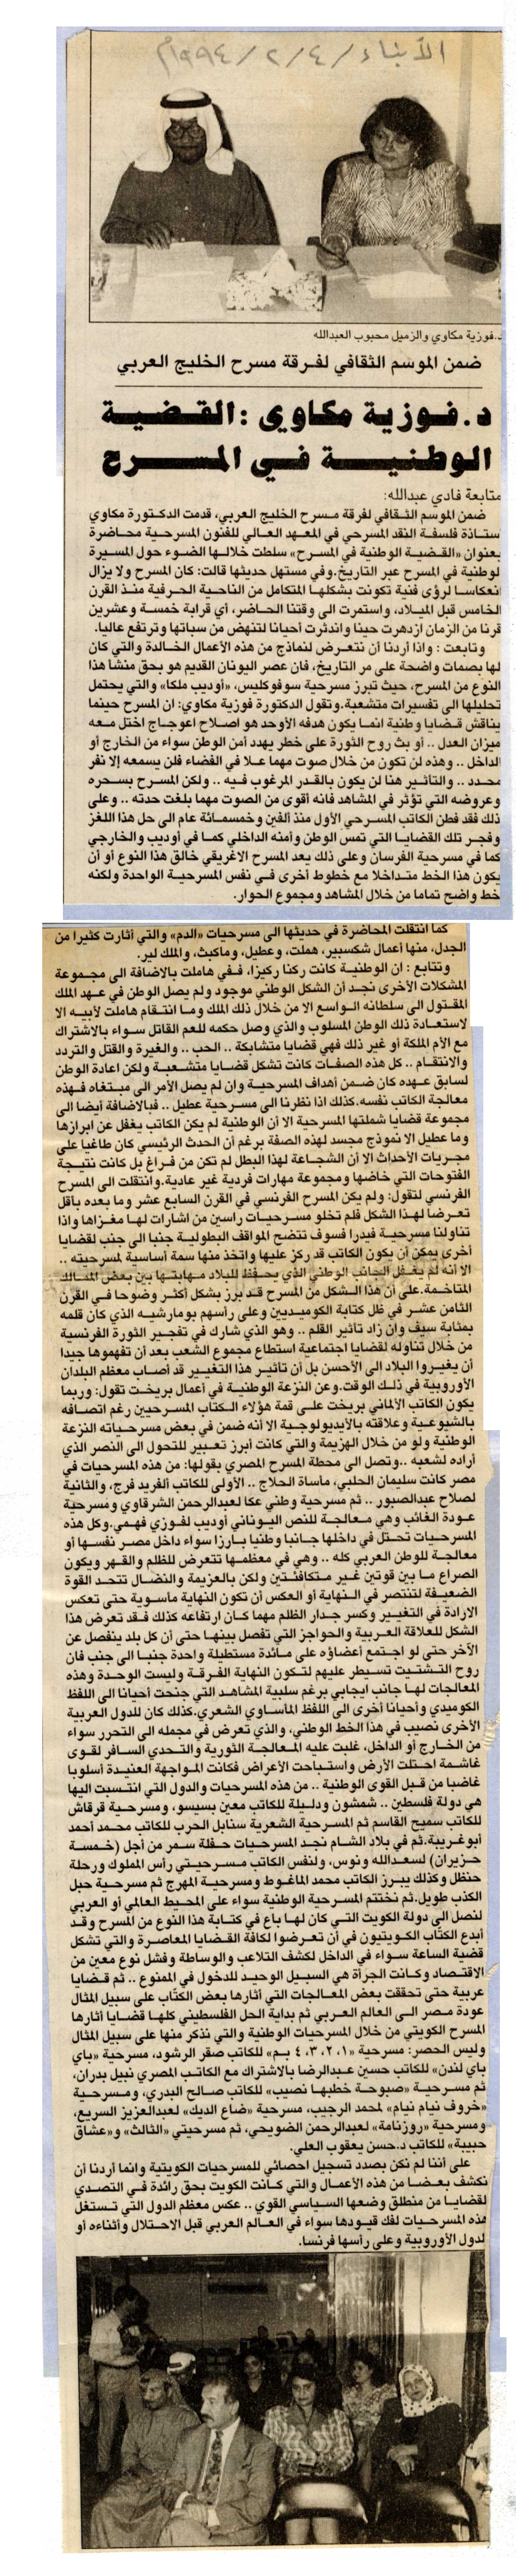 الأنباء / ٤ / ٢ / ١٩٩٤م
د.فوزية مكاوي والزميل محبوب العبدالله
ضمن الموسم الثقافي لفرقة مسرح الخليج العربي
د. فـوزيـة مكـاوي : القـضـيـة
الوطنيــة في المسـرح
متابعة فادي عبدالله:
ضمن الموسم الثقافي لفرقة مسرح الخليج العربي، قدمت الدكتورة مكاوي
ستاذة فلسفة النقد المسرحي في المعهد العالي للفنون المسرحية محاضرة
بعنوان «القضية الوطنية في المسرح» سلطت خلالها الضوء حول المسيرة
لوطنية في المسرح عبر التاريخ.وفي مستهل حديثها قالت: كان المسرح ولا يزال
نعكاسا لرؤى فنية تكونت بشكلها المتكامل من الناحية الحرفية منذ القرن
الخامس قبل الميلاد، واستمرت الى وقتنا الحاضر، أي قرابة خمسة وعشرين
قرنا من الزمان ازدهرت حينا واندثرت أحيانا لتنهض من سباتها وترتفع عاليا.
وتابعت : واذا أردنا أن نتعرض لنماذج من هذه الأعمال الخالدة والتي كان
لها بصمات واضحة على مر التاريخ، فان عصر اليونان القديم هو بحق منشأ هذا
النوع من المسرح، حيث تبرز مسرحية سوفوكليس، «أوديب ملكا» والتي يحتمل
تحليلها الى تفسيرات متشعبة.وتقول الدكتورة فوزية مكاوي: ان المسرح حينما
يناقش قضايا وطنية انما يكون هدفه الأوحد هو اصلاح اعوجاج اختل معه
ميزان العدل .. أو بث روح الثورة على خطر يهدد أمن الوطن سواء من الخارج أو
الداخل .. وهذه لن تكون من خلال صوت مهما علا في الفضاء فلن يسمعه إلا نفر
محدد .. والتأثير هنا لن يكون بالقدر المرغوب فيه .. ولكن المسرح بسحره
وعروضه التي تؤثر في المشاهد فانه أقوى من الصوت مهما بلغت حدته .. وعلى
ذلك فقد فطن الكاتب المسرحي الأول منذ ألفين وخمسمائة عام الى حل هذا اللغز
وفجر تلك القضايا التي تمس الوطن وأمنه الداخلي كما في أوديب والخارجي
كما في مسرحية الفرسان وعلى ذلك يعد المسرح الاغريقي خالق هذا النوع أو أن
يكون هذا الخط متداخلا مع خطوط أخرى في نفس المسرحية الواحدة ولكنه
خط واضح تماما من خلال المشاهد ومجموع الحوار.
كما انتقلت المحاضرة في حديثها الى مسرحيات «الدم» والتي أثارت كثيرا من
الجدل، منها أعمال شكسبير، هملت، وعطيل، وماكبث، والملك لير.
وتتابع : ان الوطنية كانت ركنا ركيزا، ففي هاملت بالاضافة الى مجموعة
المشكلات الأخرى نجد أن الشكل الوطني موجود ولم يصل الوطن في عهد الملك
المقتول الى سلطانه الواسع الا من خلال ذلك الملك وما انتقام هاملت لأبيه الا
لاستعادة ذلك الوطن المسلوب والذي وصل حكمه للعم القاتل سواء بالاشتراك
مع الأم الملكة أو غير ذلك فهي قضايا متشابكة .. الحب .. والغيرة والقتل والتردد
والانتقام .. كل هذه الصفات كانت تشكل قضايا متشعبة ولكن اعادة الوطن
لسابق عهده كان ضمن أهداف المسرحية وان لم يصل الأمر الى مبتغاه فهذه
معالجة الكاتب نفسه.كذلك اذا نظرنا الى مسرحية عطيل .. فبالاضافة أيضا الى
مجموعة قضايا شملتها المسرحية الا أن الوطنية لم يكن الكاتب يغفل عن ابرازها
وما عطيل الا نموذج مجسد لهذه الصفة برغم أن الحدث الرئيسي كان طاغيا على
مجريات الأحداث الا أن الشجاعة لهذا البطل لم تكن من فراغ بل كانت نتيجة
الفتوحات التي خاضها ومجموعة مهارات فردية غير عادية.وانتقلت الى المسرح
الفرنسي لتقول: ولم يكن المسرح الفرنسي في القرن السابع عشر وما بعده بأقل
تعرضا لهذا الشكل فلم تخلو مسرحيات راسين من اشارات لها مغزاها واذا
تناولنا مسرحية فيدرا فسوف تتضح المواقف البطولية جنبا الى جنب لقضايا
أخرى يمكن أن يكون الكاتب قد ركز عليها واتخذ منها سمة أساسية لمسرحيته ..
الا أنه لم يغفل الجانب الوطني الذي يحفظ للبلاد مهابتها بين بعض الممالك
المتاخمة.على أن هذا الشكل من المسرح قد برز بشكل أكثر وضوحا في القرن
الثامن عشر في ظل كتابة الكوميديين وعلى رأسهم بومارشيه الذي كان قلمه
بمثابة سيف وان زاد تأثير القلم .. وهو الذي شارك في تفجير الثورة الفرنسية
من خلال تناوله لقضايا اجتماعية استطاع مجموع الشعب بعد أن تفهموها جيدا
أن يغيروا البلاد الى الأحسن بل أن تأثير هذا التغيير قد أصاب معظم البلدان
الأوروبية في ذلك الوقت.وعن النزعة الوطنية في أعمال بريخت تقول: وربما
يكون الكاتب الألماني بريخت على قمة هؤلاء الكتاب المسرحيين رغم اتصافه
بالشيوعية وعلاقته بالأيديولوجية الا أنه ضمن في بعض مسرحياته النزعة
الوطنية ولو من خلال الهزيمة والتي كانت أبرز تعبير للتحول الى النصر الذي
أراده لشعبه ..وتصل الى محطة المسرح المصري بقولها: من هذه المسرحيات في
مصر كانت سليمان الحلبي، مأساة الحلاج .. الأولى للكاتب ألفريد فرج، والثانية
لصلاح عبدالصبور .. ثم مسرحية وطني عكا لعبدالرحمن الشرقاوي ومسرحية
عودة الغائب وهي معالجة للنص اليوناني أوديب لفوزي فهمي.وكل هذه
المسرحيات تحتل في داخلها جانبا وطنيا بارزا سواء داخل مصر نفسها أو
معالجة للوطن العربي كله .. وهي في معظمها تتعرض للظلم والقهر ويكون
الصراع ما بين قوتين غير متكافئتين ولكن بالعزيمة والنضال تتحد القوة
الضعيفة لتنتصر في النهاية أو العكس أن تكون النهاية مأسوية حتى تعكس
الارادة في التغيير وكسر جدار الظلم مهما كان ارتفاعه كذلك فقد تعرض هذا
الشكل للعلاقة العربية والحواجز التي تفصل بينها حتى أن كل بلد ينفصل عن
الآخر حتى لو اجتمع أعضاؤه على مائدة مستطيلة واحدة جنبا الى جنب فان
روح التشتيت تسيطر عليهم لتكون النهاية الفرقة وليست الوحدة وهذه
المعالجات لها جانب ايجابي برغم سلبية المشاهد التي جنحت أحيانا الى اللفظ
الكوميدي وأحيانا أخرى الى اللفظ المأساوي الشعري.كذلك كان للدول العربية
الأخرى نصيب في هذا الخط الوطني، والذي تعرض في مجمله الى التحرر سواء
من الخارج أو الداخل، غلبت عليه المعالجة الثورية والتحدي السافر لقوى
غاشمة احتلت الأرض واستباحت الأعراض فكانت المواجهة العنيدة أسلوبا
غاضبا من قبل القوى الوطنية .. من هذه المسرحيات والدول التي انتسبت اليها
هي دولة فلسطين .. شمشون ودليلة للكاتب معين بسيسو، ومسرحية قرقاش
للكاتب سميح القاسم ثم المسرحية الشعرية سنابل الحرب للكاتب محمد أحمد
أبوغريبة.ثم في بلاد الشام نجد المسرحيات حفلة سمر من أجل (خمسة
حزيران) لسعدالله ونوس، ولنفس الكاتب مسرحيتي رأس المملوك ورحلة
حنظل وكذلك يبرز الكاتب محمد الماغوط ومسرحية المهرج ثم مسرحية حبل
الكذب طويل.ثم نختتم المسرحية الوطنية سواء على المحيط العالمي أو العربي
لنصل الى دولة الكويت التي كان لها باع في كتابة هذا النوع من المسرح وقد
أبدع الكتاب الكويتيون في أن تعرضوا لكافة القضايا المعاصرة والتي تشكل
قضية الساعة سواء في الداخل لكشف التلاعب والوساطة وفشل نوع معين من
الاقتصاد وكانت الجرأة هي السبيل الوحيد للدخول في الممنوع .. ثم قضايا
عربية حتى تحققت بعض المعالجات التي أثارها بعض الكتاب على سبيل المثال
عودة مصر الى العالم العربي ثم بداية الحل الفلسطيني كلها قضايا أثارها
المسرح الكويتي من خلال المسرحيات الوطنية والتي نذكر منها على سبيل المثال
وليس الحصر: مسرحية «١، ٢، ٣، ٤ بم» للكاتب صقر الرشود، مسرحية «باي
باي لندن» للكاتب حسين عبدالرضا بالاشتراك مع الكاتب المصري نبيل بدران،
ثم مسرحية «صبوحة خطبها نصيب» للكاتب صالح البدري، ومسرحية
«خروف نيام نيام» لمحمد الرجيب، مسرحية «ضاع الديك» لعبدالعزيز السريع،
ومسرحية «روزنامة» لعبدالرحمن الضويحي، ثم مسرحيتي «الثالث» و«عشاق
حبيبة» للكاتب د.حسن يعقوب العلي.
على أننا لم نكن بصدد تسجيل احصائي للمسرحيات الكويتية وانما أردنا أن
نكشف بعضا من هذه الأعمال والتي كانت الكويت بحق رائدة في التصدي
لقضايا من منطلق وضعها السياسي القوي .. عكس معظم الدول التي تستغل
هذه المسرحيات لفك قيودها سواء في العالم العربي قبل الاحتلال وأثناءه أو
لدول الأوروبية وعلى رأسها فرنسا.